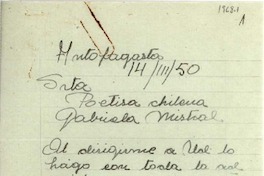 1968-1
A
Antofagasta
14/III/50
Srta
Poetisa chilena
Gabriela Mistral
Al dirigirme a Ud lo
hago con toda la